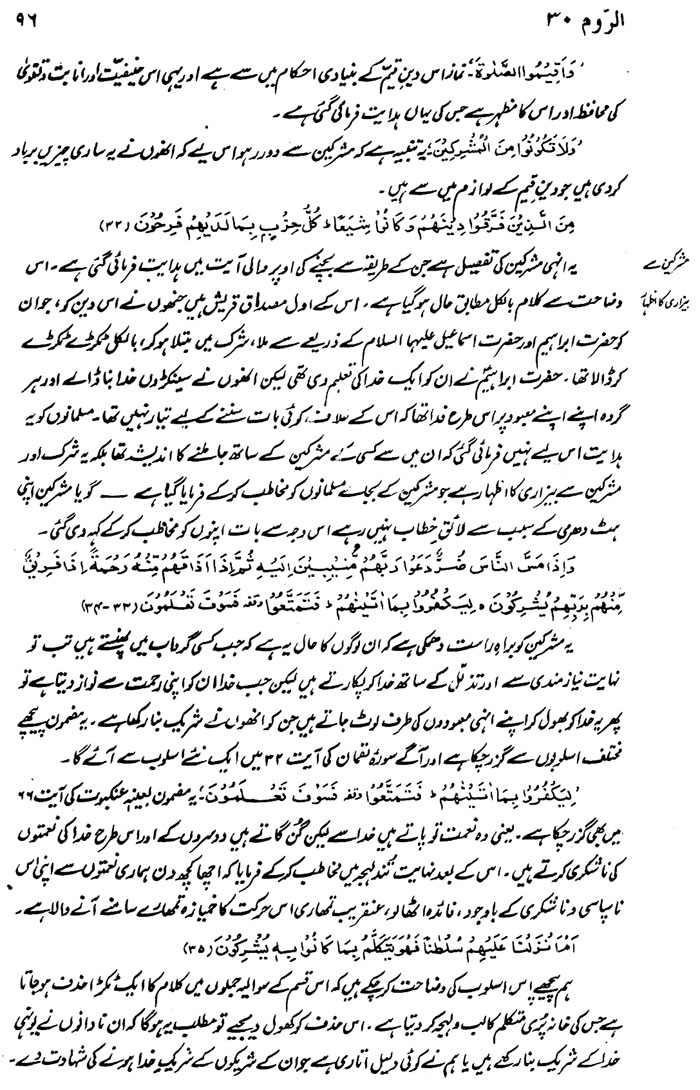 ۹۶ الرّوم ۳۰
’وَاَقِیْمُوا الصَّلٰوۃَ‘، نماز اس دینِ قیّم کے بنیادی احکام میں سے ہے اور یہی اس حنیفیّت اور انابت و تقویٰ
کی محافظ اور اس کا مظہر ہے جس کی یہاں ہدایت فرمائی گئی ہے۔
’وَلَا تَکُوْنُوْا مِنَ الْمُشْرِکِیْنَ‘ یہ تنبیہ ہے کہ مشرکین سے دور رہو اس لیے کہ انھوں نے یہ ساری چیزیں برباد
کر دی ہیں جو دینِ قیّم کے لوازم میں سے ہیں۔
مِنَ الَّذِیْنَ فَرَّقُوْا دِیْنَھُمْ وَکَانُوْا شِیَعًا ؕ کُلُّ حِزْبٍۭ بِمَا لَدَیْھِمْ فَرِحُوْنَ (۳۲)
مشرکین سے
بیزاری کا اظہار
یہ انہی مشرکین کی تفصیل ہے جن کے طریقہ سے بچنے کی اوپر والی آیت میں ہدایت فرمائی گئی ہے۔ اس
وضاحت سے کلام بالکل مطابق حال ہو گیا ہے۔ اس کے اول مصداق قریش ہیں جنھوں نے اس دین کو، جو ان
کو حضرت ابراہیم اور حضرت اسماعیل علیہما السلام کے ذریعے سے ملا، شرک میں مبتلا ہو کر، بالکل ٹکڑے ٹکڑے
کر ڈالا تھا۔ حضرت ابراہیمؑ نے ان کو ایک خدا کی تعلیم دی تھی لیکن انھوں نے سینکڑوں خدا بنا ڈالے اور ہر
گروہ اپنے اپنے معبود پر اس طرح فدا تھا کہ اس کے خلاف کوئی بات سننے کے لیے تیار نہیں تھا۔ مسلمانوں کو یہ
ہدایت اس لیے نہیں فرمائی گئی کہ ان میں سے کسی کے مشرکین کے ساتھ جا ملنے کا اندیشہ تھا بلکہ یہ شرک اور
مشرکین سے بیزاری کا اظہار ہے جو مشرکین کے بجائے مسلمانوں کو مخاطب کر کے فرمایا گیا ہے — گویا مشرکین اپنی
ہٹ دھرمی کے سبب سے لائق خطاب نہیں رہے اس وجہ سے بات اپنوں کو مخاطب کر کے کہہ دی گئی۔
وَاِذَا مَسَّ النَّاسَ ضُرٌّ دَعَوْا رَبَّھُمْ مُّنِیْبِیْنَ اِلَیْہِ ثُمَّ اِذَا اَذَاقَھُمْ مِّنْہُ رَحْمَۃً اِذَا فَرِیْقٌ
مِّنْھُمْ بِرَبِّھِمْ یُشْرِکُوْنَ ہ لِیَکْفُرُوْا بِمَا اٰتَیْنٰھُمْ ؕ فَتَمَتَّعُوْا وقفہ فَسَوْفَ تَعْلَمُوْنَ (۳۳-۳۴)
یہ مشرکین کو براہِ راست دھمکی ہے کہ ان لوگوں کا حال یہ ہے کہ جب کسی گرداب میں پھنستے ہیں تب تو
نہایت نیازمندی سے اور تذلّل کے ساتھ خدا کو پکارتے ہیں لیکن جب خدا ان کو اپنی رحمت سے نواز دیتا ہے تو
پھر یہ خدا کو بھول کر اپنے انہی معبودوں کی طرف لوٹ جاتے ہیں جن کو انھوں نے شریک بنا رکھا ہے۔ یہ مضمون پیچھے
مختلف اسلوبوں سے گزر چکا ہے اور آگے سورۂ لقمان کی آیت ۳۲ میں ایک نئے اسلوب سے آئے گا۔
’لِیَکْفُرُوْا بِمَا اٰتَیْنٰھُمْ ؕ فَتَمَتَّعُوْا وقفہ فَسَوْفَ تَعْلَمُوْنَ‘، یہ مضمون بعینہٖ عنکبوت کی آیت ۶۶
میں بھی گزر چکا ہے۔ یعنی وہ نعمت تو پاتے ہیں خدا سے لیکن گُن گاتے ہیں دوسروں کے اور اس طرح خدا کی نعمتوں
کی ناشکری کرتے ہیں۔ اس کے بعد نہایت تُند لہجہ میں مخاطب کر کے فرمایا کہ اچھا کچھ دن ہماری نعمتوں سے اپنی اس
ناسپاسی و ناشکری کے باوجود، فائدہ اٹھا لو، عنقریب تمھاری اس حرکت کا خمیازہ تمھارے سامنے آنے والا ہے۔
اَمْ اَنْزَلْنَا عَلَیْھِمْ سُلْطٰنًا فَھُوَ یَتَکَلَّمُ بِمَا کَانُوْا بِہٖ یُشْرِکُوْنَ (۳۵)
ہم پیچھے اس اسلوب کی وضاحت کر چکے ہیں کہ اس قسم کے سوالیہ جملوں میں کلام کا ایک ٹکڑا حذف ہو جاتا
ہے جس کی خانہ پُری متکلم کا لب و لہجہ کر دیتا ہے۔ اس حذف کو کھول دیجیے تو مطلب یہ ہوگا کہ ان نادانوں نے یونہی
خدا کے شریک بنا رکھے ہیں یا ہم نے کوئی دلیل اتاری ہے جو ان کے شریکوں کے شریکِ خدا ہونے کی شہادت دے۔